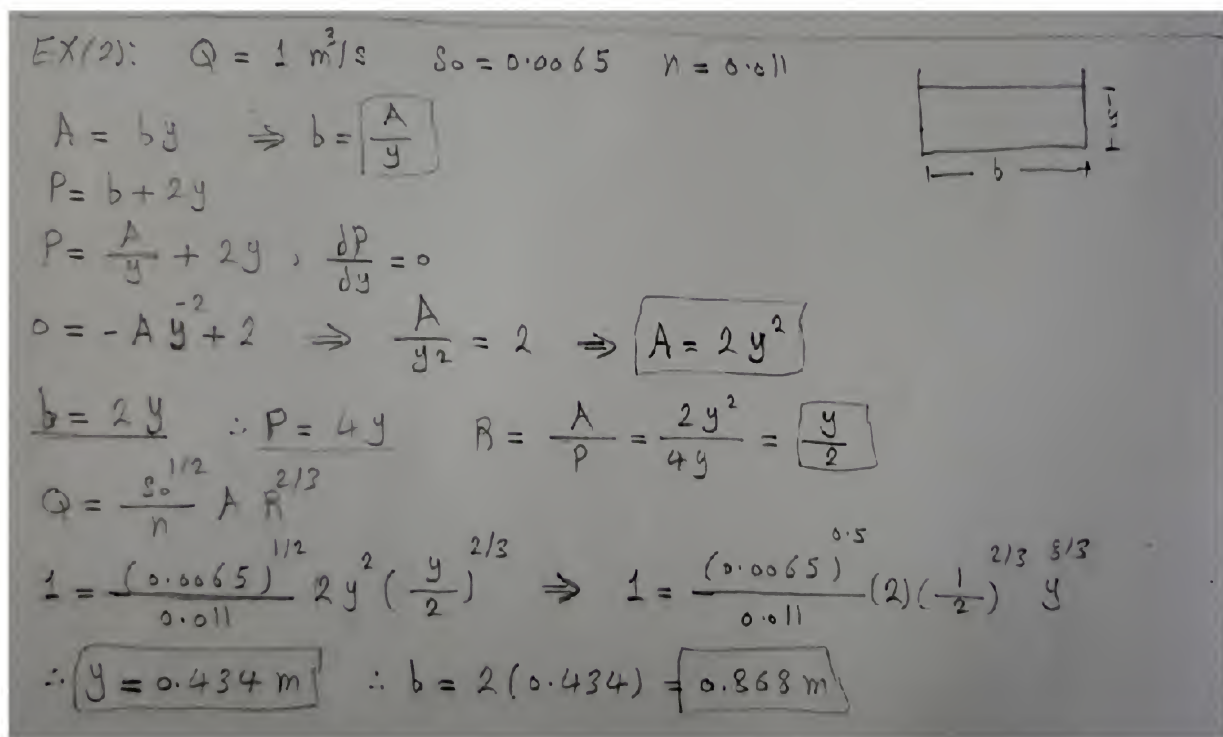 EX(2): Q = 1 m³/s S₀ = 0.0065 n = 0.011
A = by ⇒ b = A/y
y
b
P = b + 2y
P = A/y + 2y , dP/dy = 0
0 = - A y⁻² + 2 ⇒ A/y² = 2 ⇒ A = 2y²
b = 2y ∴ P = 4y R = A/P = 2y²/4y = y/2
Q = S₀^(1/2)/n A R^(2/3)
1 = (0.0065)^(1/2)/0.011 2y² (y/2)^(2/3) ⇒ 1 = (0.0065)^0.5/0.011 (2)(1/2)^(2/3) y^(8/3)
∴ y = 0.434 m ∴ b = 2(0.434) = 0.868 m